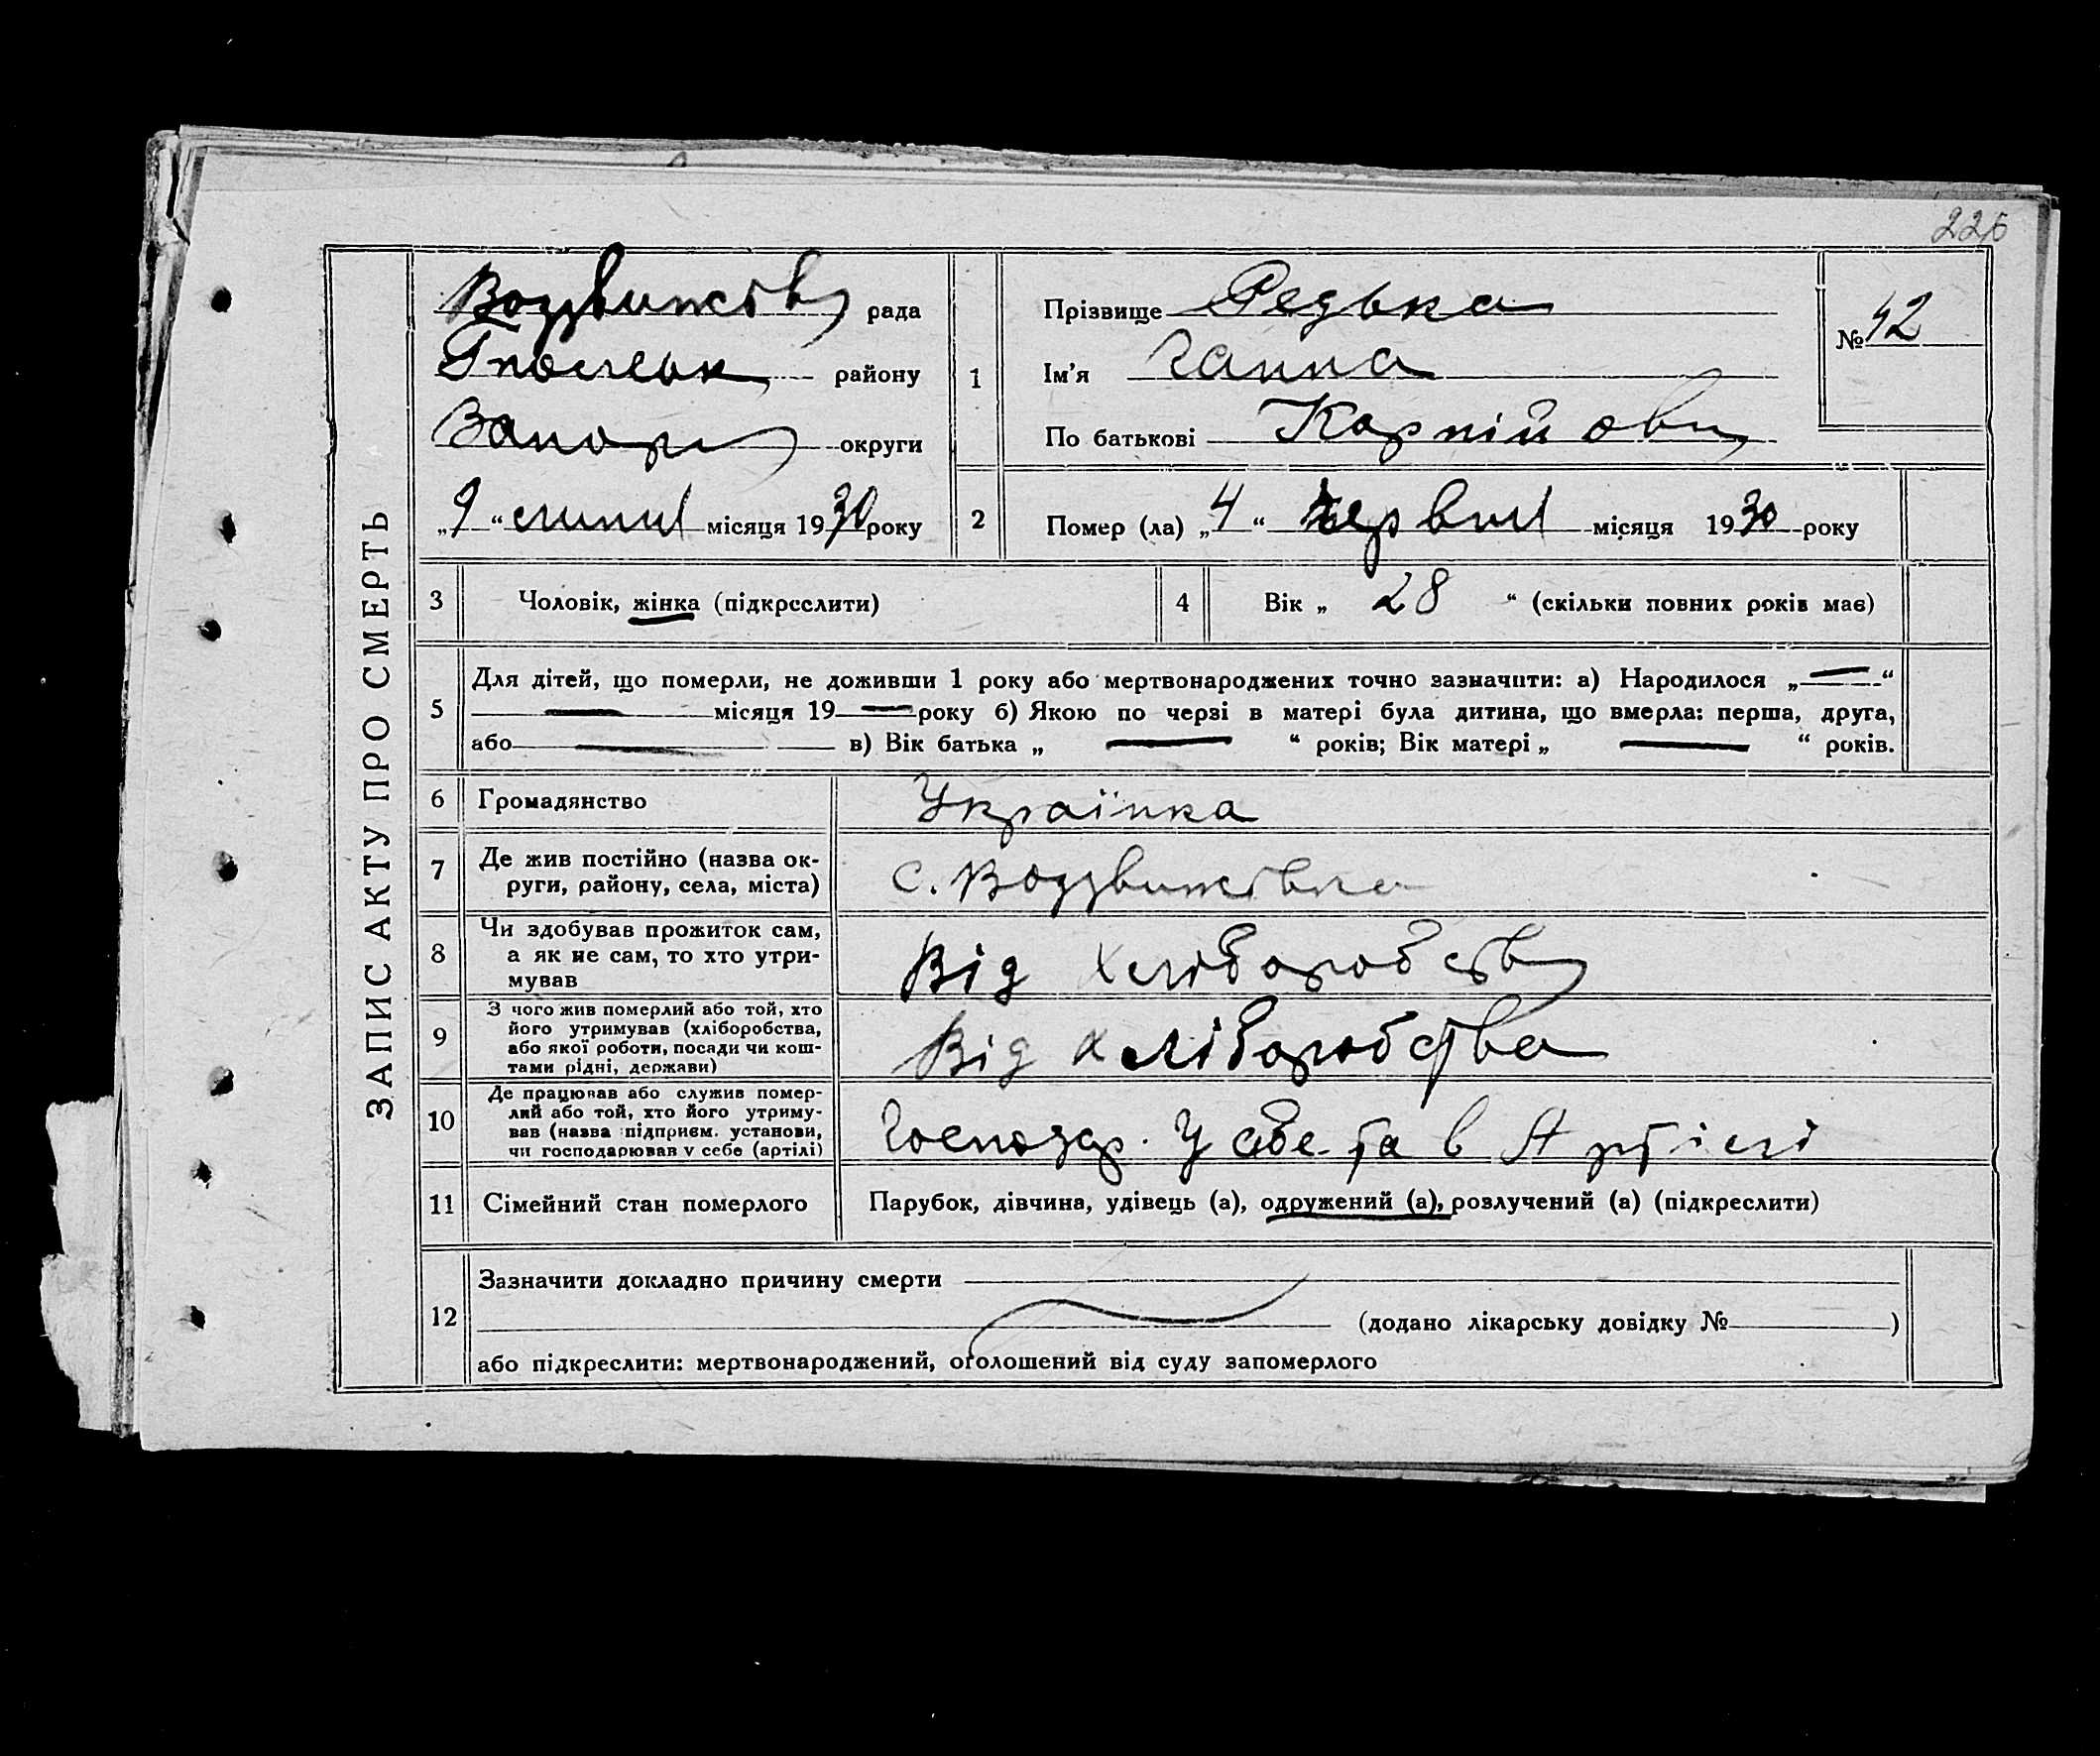 226
ЗАПИС АКТУ ПРО СМЕРТЬ
Воздвижівс рада
району
Запоріз округи
„9“ липня місяця 1930 року
1
Прізвище Редька
Ім'я Ганна
По батькові Карпійовн
№ 42
2
Помер (ла) „4“ червня місяця 1930 року
3
Чоловік, жінка (підкреслити)
4
Вік „ 28 “ (скільки повних років має)
5
Для дітей, що померли, не доживши 1 року або мертвонароджених точно зазначити: а) Народилося „—“
— місяця 19— року б) Якою по черзі в матері була дитина, що вмерла: перша, друга,
або — в) Вік батька „ — “ років; Вік матері „ — “ років.
6
Громадянство
Українка
7
Де жив постійно (назва ок-
руги, району, села, міста)
с. Воздвижівка
8
Чи здобував прожиток сам,
а як не сам, то хто утри-
мував
Від хліборобств
9
З чого жив померлий або той, хто
його утримував (хліборобства,
або якої роботи, посади чи кош-
тами рідні, держави)
Від хліборобства
10
Де працював або служив помер-
лий або той, хто його утриму-
вав (назва підприєм. установи,
чи господарював у себе (артілі)
Господар. У себе та в Артілі
11
Сімейний стан померлого
Парубок, дівчина, удівець (а), одружений (а), розлучений (а) (підкреслити)
12
Зазначити докладно причину смерти
(додано лікарську довідку № )
або підкреслити: мертвонароджений, оголошений від суду запомерлого